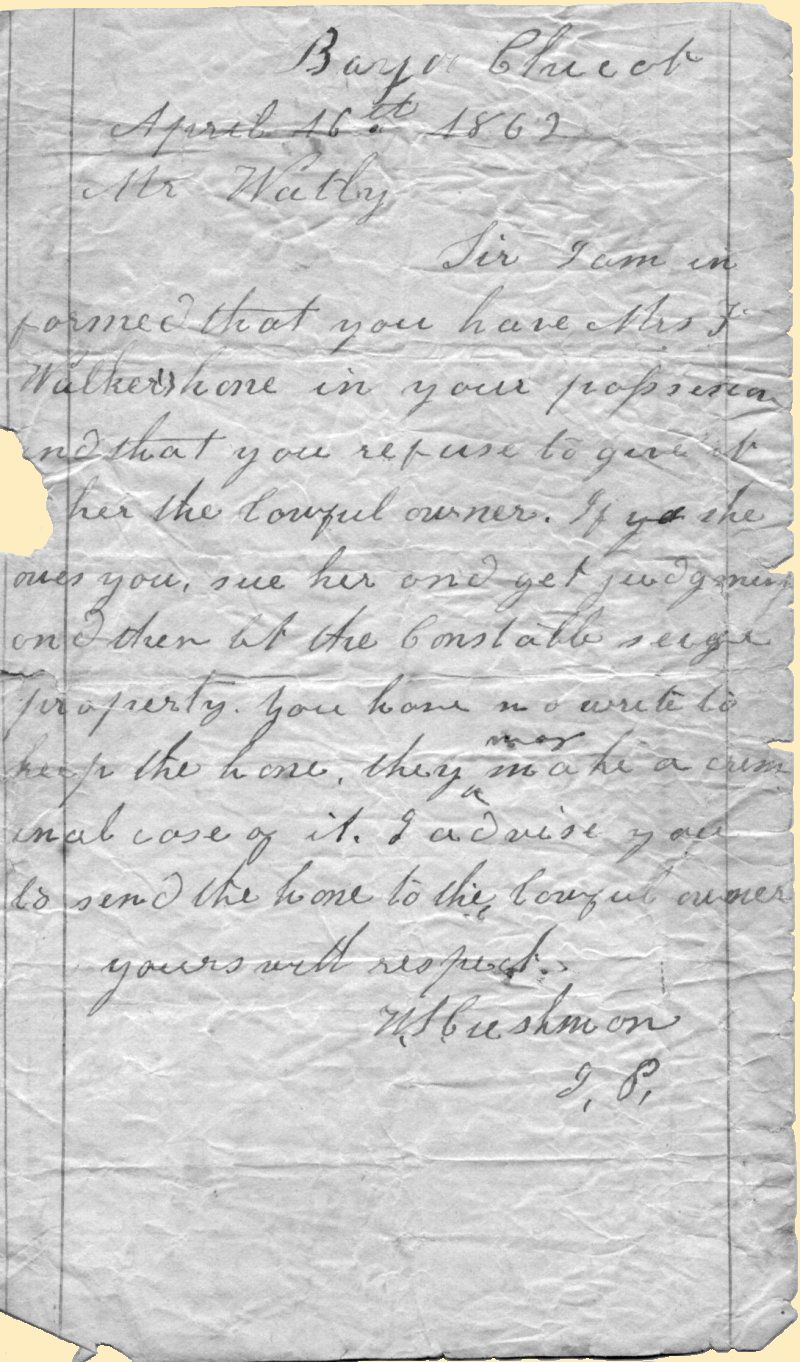 Bayou Chicot
April 16th 1862
Mr Watly
Sir I am in
formed that you have Mrs F
Walkers horse in your possesion
and that you refuse to give it
her the lawful owner. If she
ows you, sue her and get judgment
and then let the Constable seige
property. you have no write to
keep the horse, they may make a crim
inal case of it. I advise you
to send the horse to the lawful owner
yours with respect.
W. S Cushman
J, P,